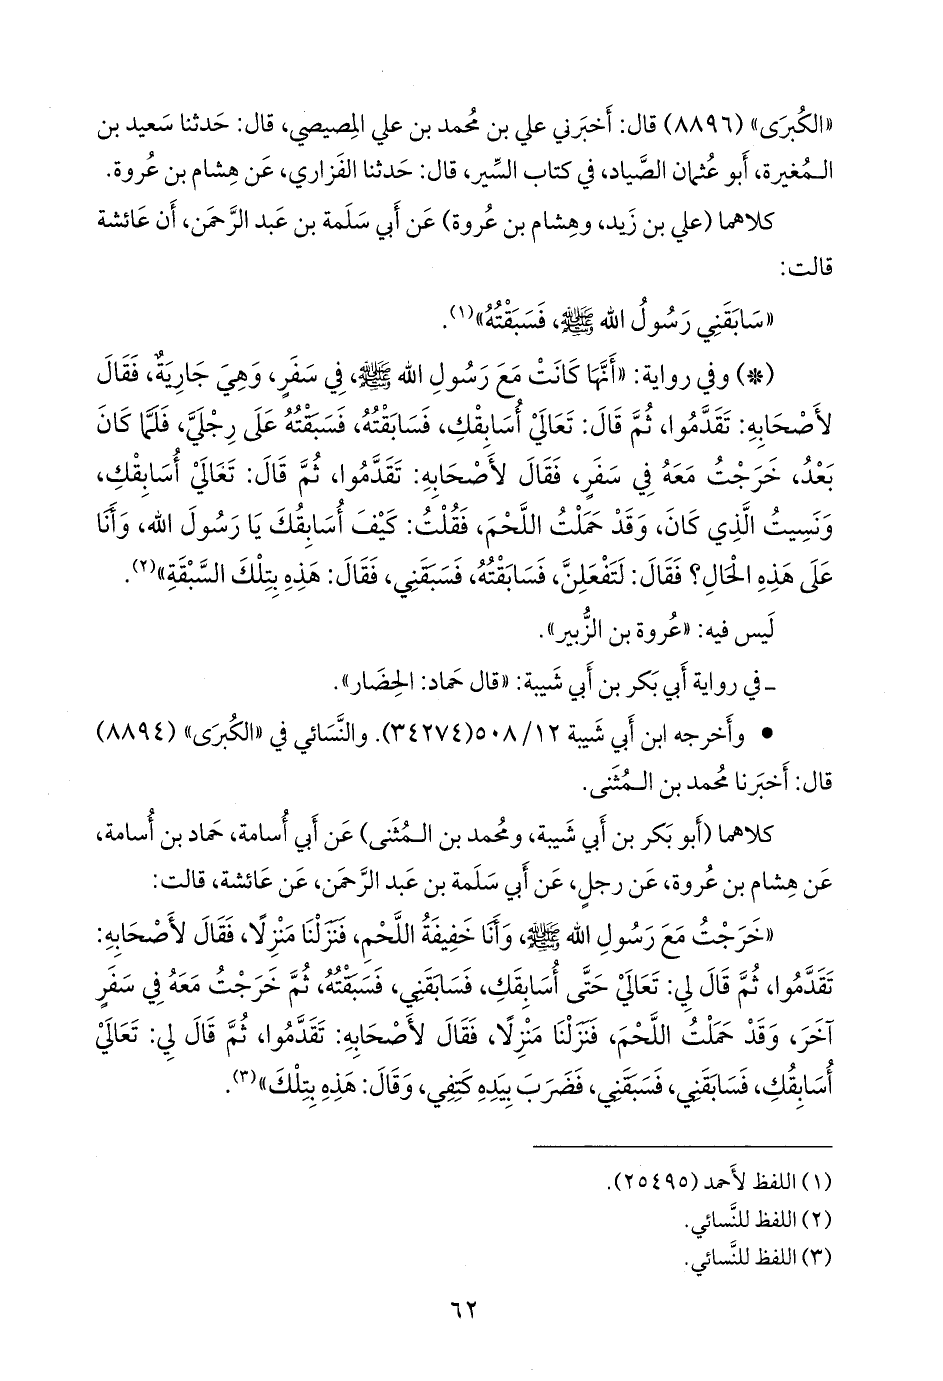 «الكُبرَى» (٨٨٩٦) قال: أَخبَرني علي بن محُمد بن علي المِصيصي، قال: حَدثنا سَعيد بن
الـمُغيرة، أَبو عُثمان الصَّياد، في كتاب السِّير، قال: حَدثنا الفَزاري، عَن هِشام بن عُروة.
كلاهما (علي بن زَيد، وهِشام بن عُروة) عَن أَبي سَلَمة بن عَبد الرَّحمَن، أَن عَائشة
قالت:
«سَابَقَنِي رَسُولُ الله ﷺ، فَسَبَقْتُهُ»(١).
(*) وفي رواية: «أَنَّهَا كَانَتْ مَعَ رَسُولِ الله ﷺ، فِي سَفَرٍ، وَهِيَ جَارِيَةٌ، فَقَالَ
لأَصْحَابِهِ: تَقَدَّمُوا، ثُمَّ قَالَ: تَعَالَيْ أُسَابِقْكِ، فَسَابَقْتُهُ، فَسَبَقْتُهُ عَلَى رِجْلَيَّ، فَلَمَّا كَانَ
بَعْدُ، خَرَجْتُ مَعَهُ فِي سَفَرٍ، فَقَالَ لأَصْحَابِهِ: تَقَدَّمُوا، ثُمَّ قَالَ: تَعَالَيْ أُسَابِقْكِ،
وَنَسِيتُ الَّذِي كَانَ، وَقَدْ حَمَلْتُ اللَّحْمَ، فَقُلْتُ: كَيْفَ أُسَابِقُكَ يَا رَسُولَ الله، وَأَنَا
عَلَى هَذِهِ الْحَالِ؟ فَقَالَ: لَتَفْعَلِنَّ، فَسَابَقْتُهُ، فَسَبَقَنِي، فَقَالَ: هَذِهِ بِتِلْكَ السَّبْقَةِ»(٢).
لَيس فيه: «عُروة بن الزُّبير».
ـ في رواية أَبي بَكر بن أَبي شَيبة: «قال حَماد: الحِضَار».
• وأَخرجه ابن أَبي شَيبة ١٢/ ٥٠٨(٣٤٢٧٤). والنَّسَائي في «الكُبرَى» (٨٨٩٤)
قال: أَخبَرنا محُمد بن الـمُثَنى.
كلاهما (أَبو بَكر بن أَبي شَيبة، ومحُمد بن الـمُثَنى) عَن أَبي أُسامة، حَماد بن أُسامة،
عَن هِشام بن عُروة، عَن رجلٍ، عَن أَبي سَلَمة بن عَبد الرَّحمَن، عَن عَائشة، قالت:
«خَرَجْتُ مَعَ رَسُولِ الله ﷺ، وَأَنَا خَفِيفَةُ اللَّحْمِ، فَنَزَلْنَا مَنْزِلًا، فَقَالَ لأَصْحَابِهِ:
تَقَدَّمُوا، ثُمَّ قَالَ لِي: تَعَالَيْ حَتَّى أُسَابِقَكِ، فَسَابَقَنِي، فَسَبَقْتُهُ، ثُمَّ خَرَجْتُ مَعَهُ فِي سَفَرٍ
آخَرَ، وَقَدْ حَمَلْتُ اللَّحْمَ، فَنَزَلْنَا مَنْزِلًا، فَقَالَ لأَصْحَابِهِ: تَقَدَّمُوا، ثُمَّ قَالَ لِي: تَعَالَيْ
أُسَابِقُكِ، فَسَابَقَنِي، فَسَبَقَنِي، فَضَرَبَ بِيَدِهِ كَتِفِي، وَقَالَ: هَذِهِ بِتِلْكَ»(٣).
(١) اللفظ لأَحمد (٢٥٤٩٥).
(٢) اللفظ للنَّسائي.
(٣) اللفظ للنَّسائي.
٦٢